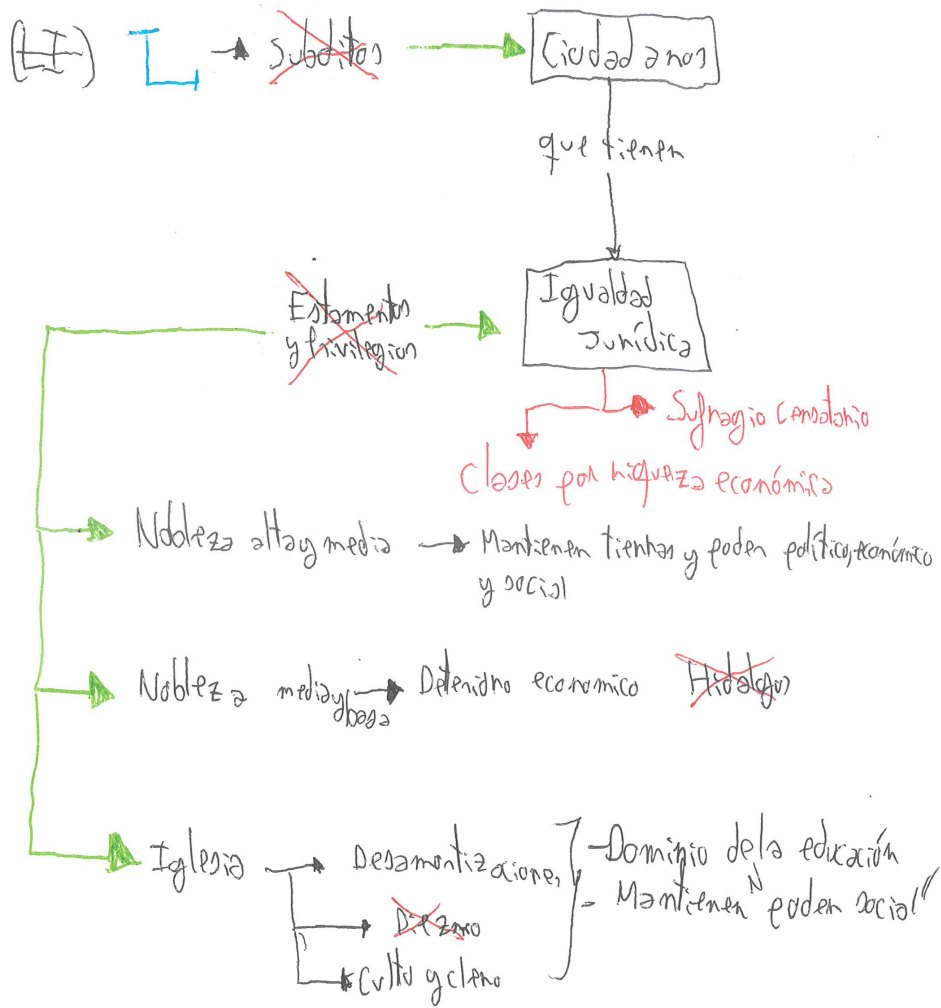 (II)
Subditos
Ciudadanos
que tienen
Estamentos
y Privilegios
Igualdad
Jurídica
Sufragio Censatario
Clases por riqueza económica
Nobleza alta y media
Mantienen tierras y poder político, económico
y social
Nobleza media y
baja
Deterioro economico
Hidalgos
Iglesia
Desamortizaciones
Diezmo
Culto y clero
-Dominio de la educación
- Mantienen "poder social"